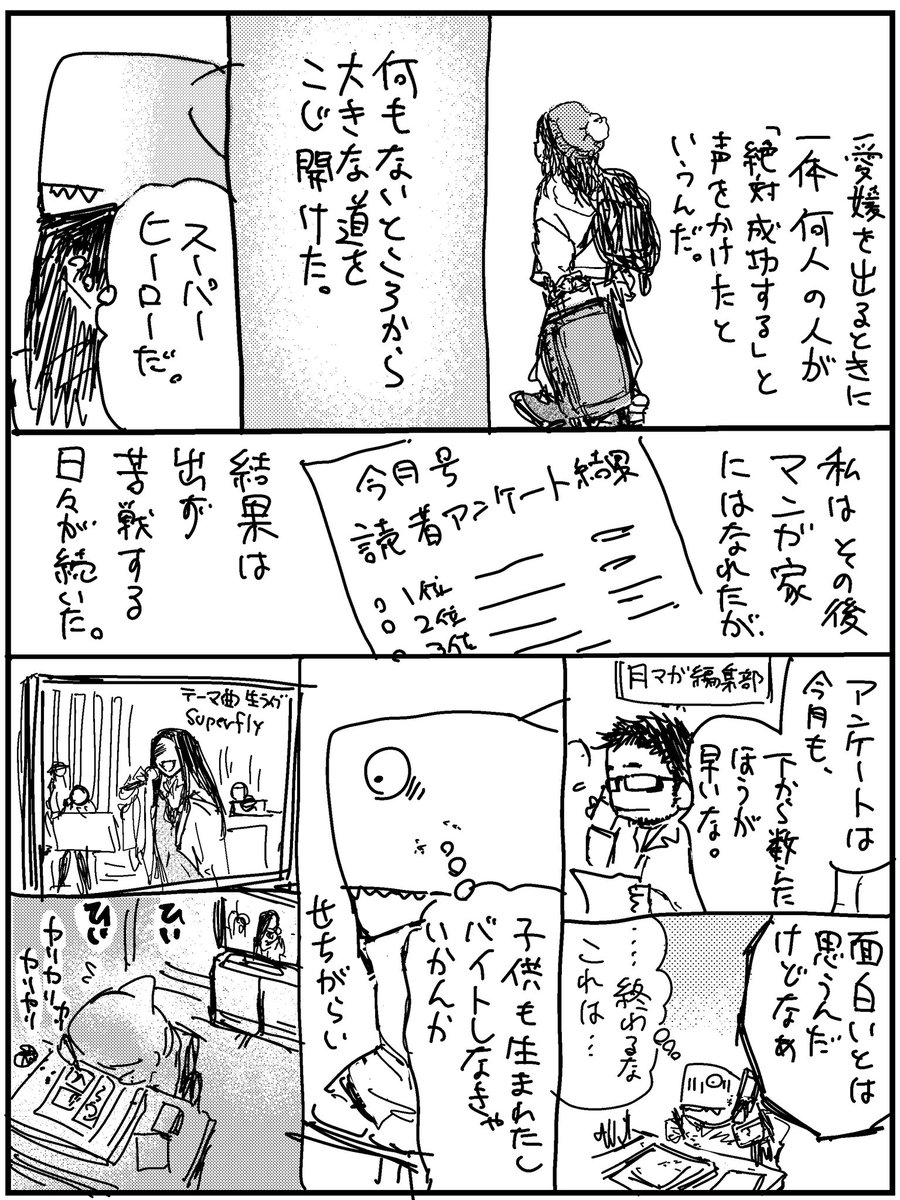 愛媛を出るときに
一体何人の人が
「絶対成功する」と
声をかけたと
いうんだ。
何もないところから
大きな道を
こじ開けた。
スーパー
ヒーローだ。
私はその後
マンガ家
にはなれたが、
今月号
読者アンケート結果
1位
2位
3位
結果は
出ず
苦戦する
日々が続いた。
月マガ編集部
アンケートは
今月も、
下から数えた
ほうが
早いな。
面白いとは
思うんだ
けどなぁ
…終わるな
これは…
子供も生まれたし
バイトしなきゃ
いかんか
せちがらい
テーマ曲 生ライブ
Superfly
ひぃ
ひぃ
カリカリカリ
カリカリ